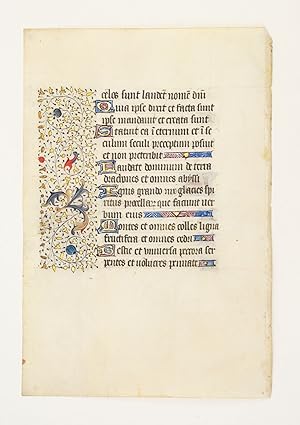 celos sunt laudent nomen dm̄
Quia ipse dixit et facta sunt
ipse mandauit et creata sunt
Statuit ea ī eternum et ī se
culum seculi preceptum posuit
et non preteribit
Laudate dominum de terra
dracones et omnes abyssi
Ignis grando nix glacies spi
ritus procellar que faciunt ver
bum eius
Montes et omnes colles ligna
fructifera et omnes cedri
Bestie et vniuersa pecora ser
pentes et volucres pennate